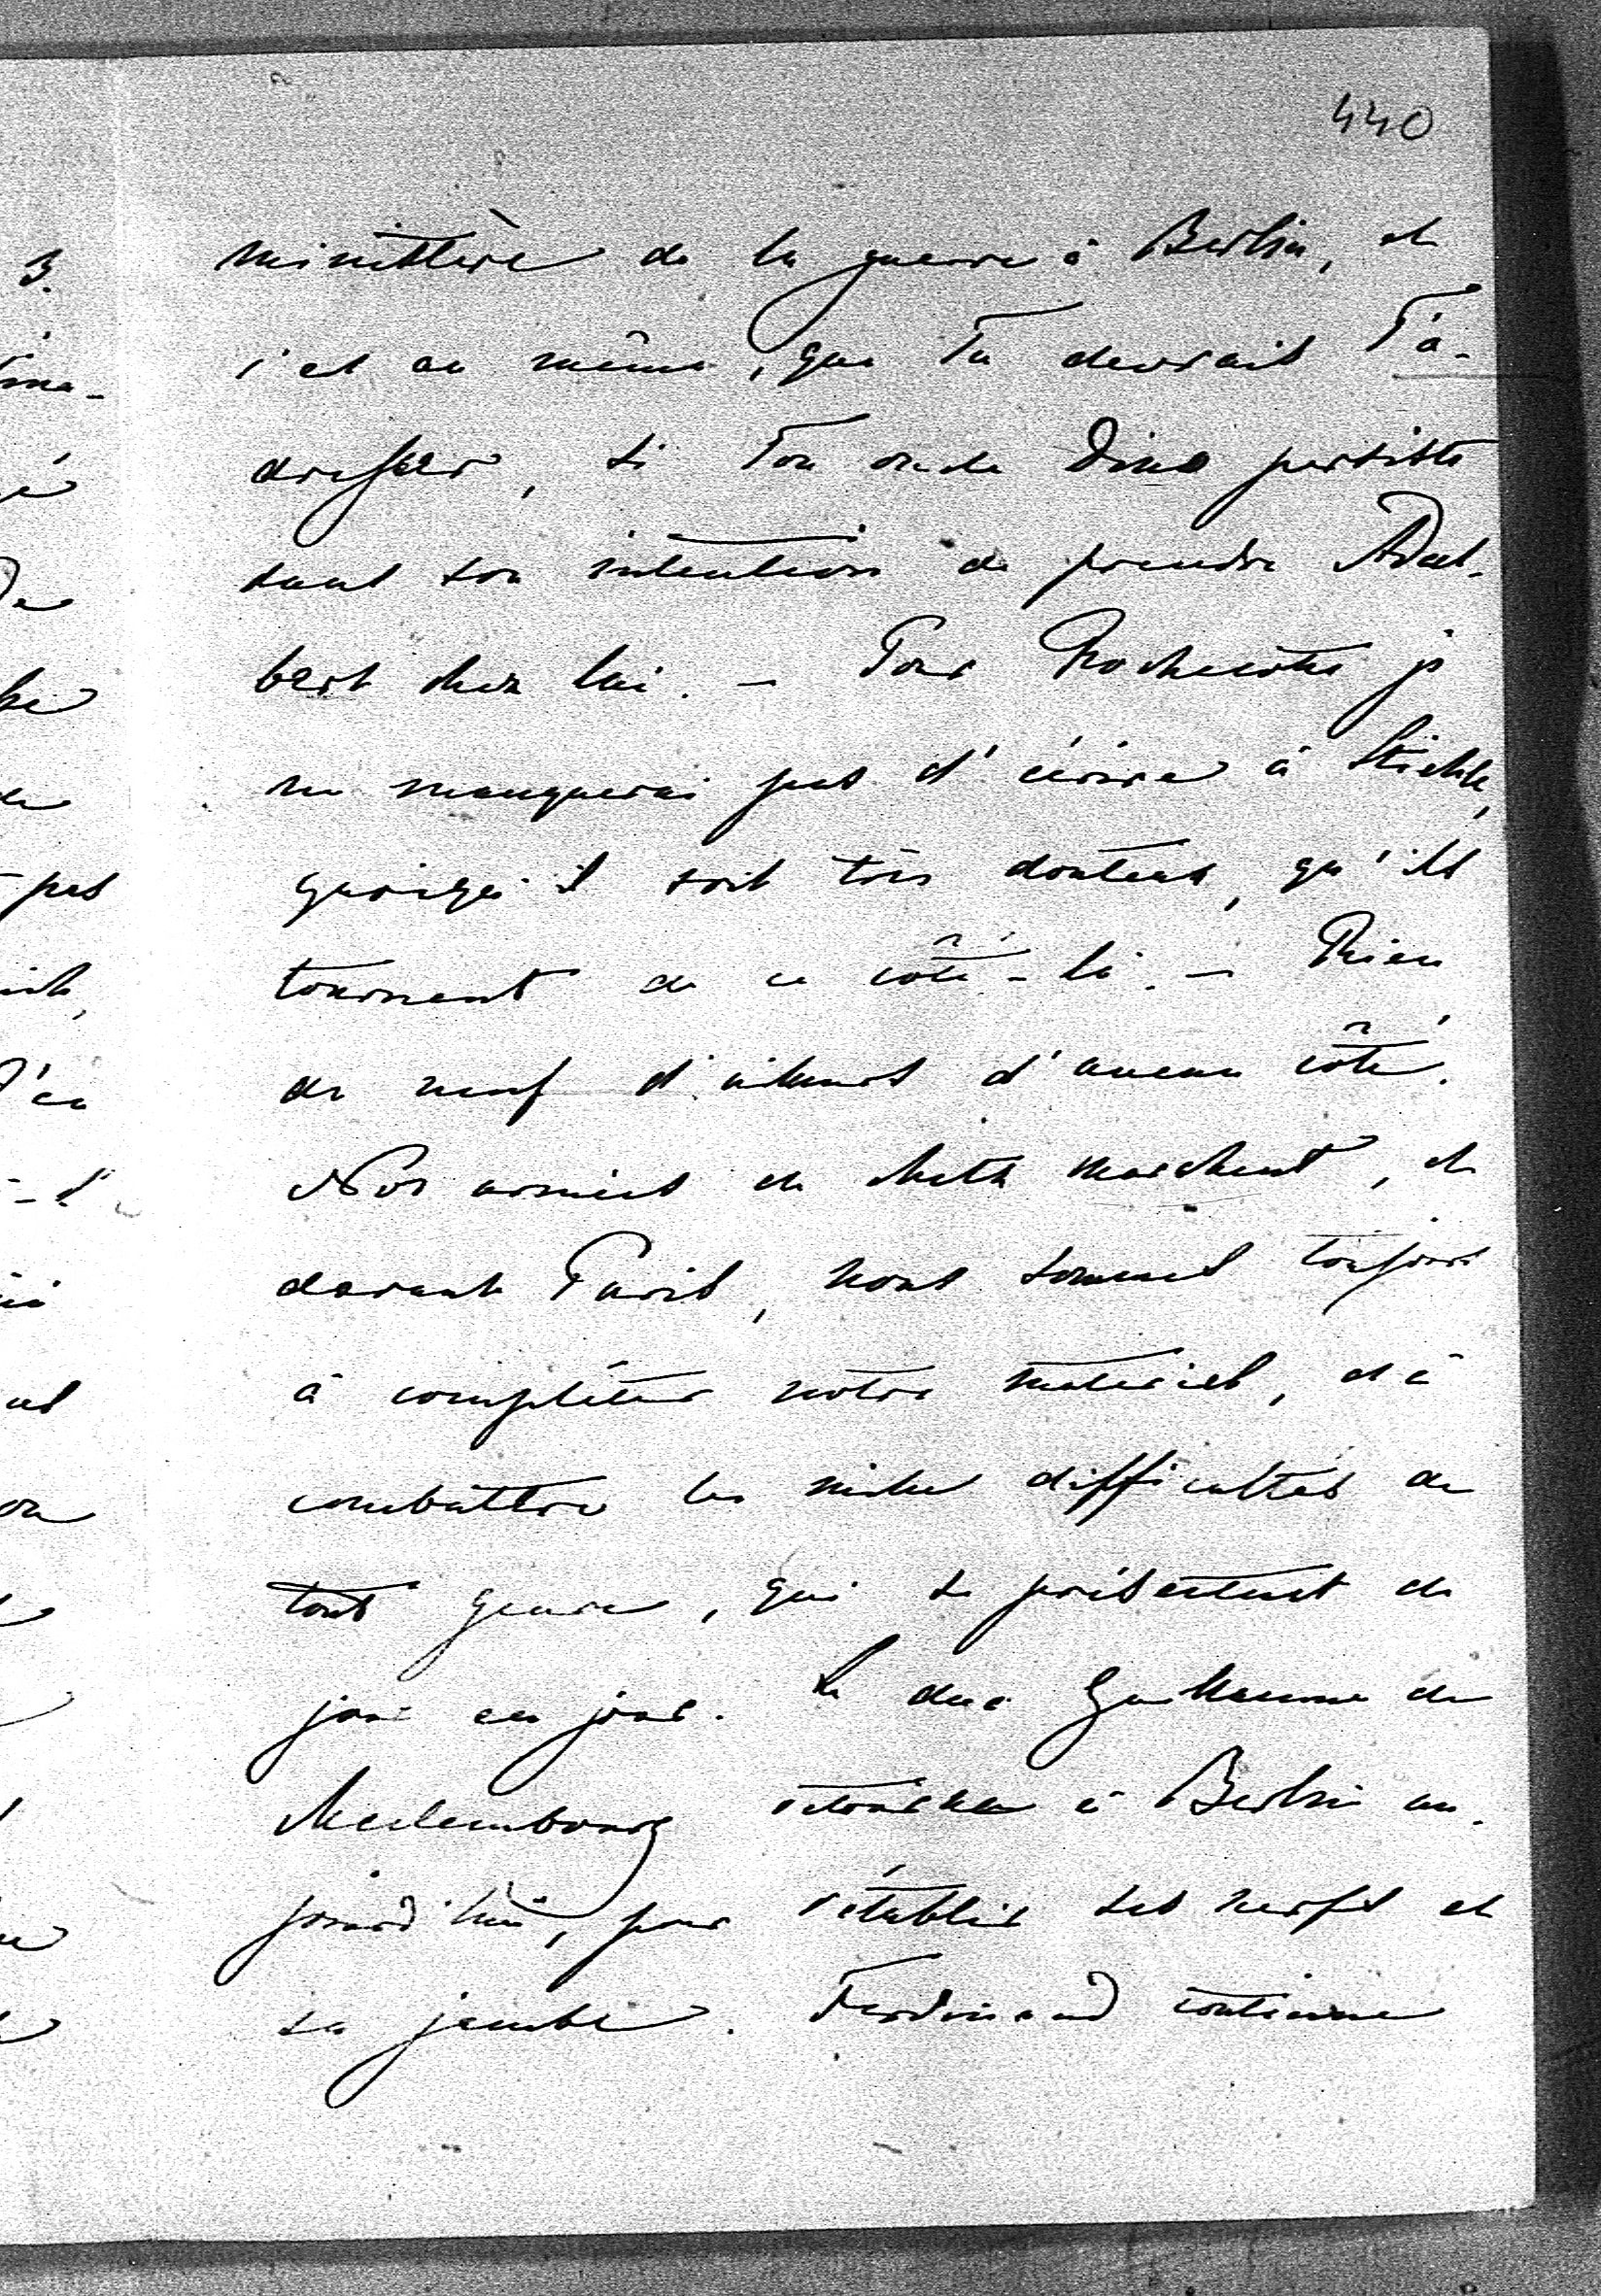 440
ministère de la guerre à Berlin, et
c'est au même, que Tu devrais T'a-
dresser, si Ton oncle Dino persiste
dans son intention de prendre Adal-
bert chez lui. – Pour Rochecotte je
ne manquerai pas d'écrire à Stiehle,
quoiqu'il soit très douteux, qu'ils
tournent de ce côté-là. – Rien
de neuf d'ailleurs d'aucun côté.
Nos armées de Metz marchent, et
devant Paris, nous sommes toujours
à compléter notre matériel, et à
combattre les mille difficultés de
tout genre, qui se présentent de
jour en jour. Le duc Guillaume de
Meclembourg retourne à Berlin au-
jourd'hui, pour rétablir ses nerfs et
sa jambe. Ferdinand continue